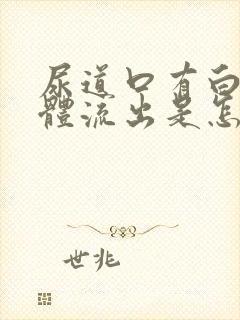 尿道口有白
體流出是怎
世兆